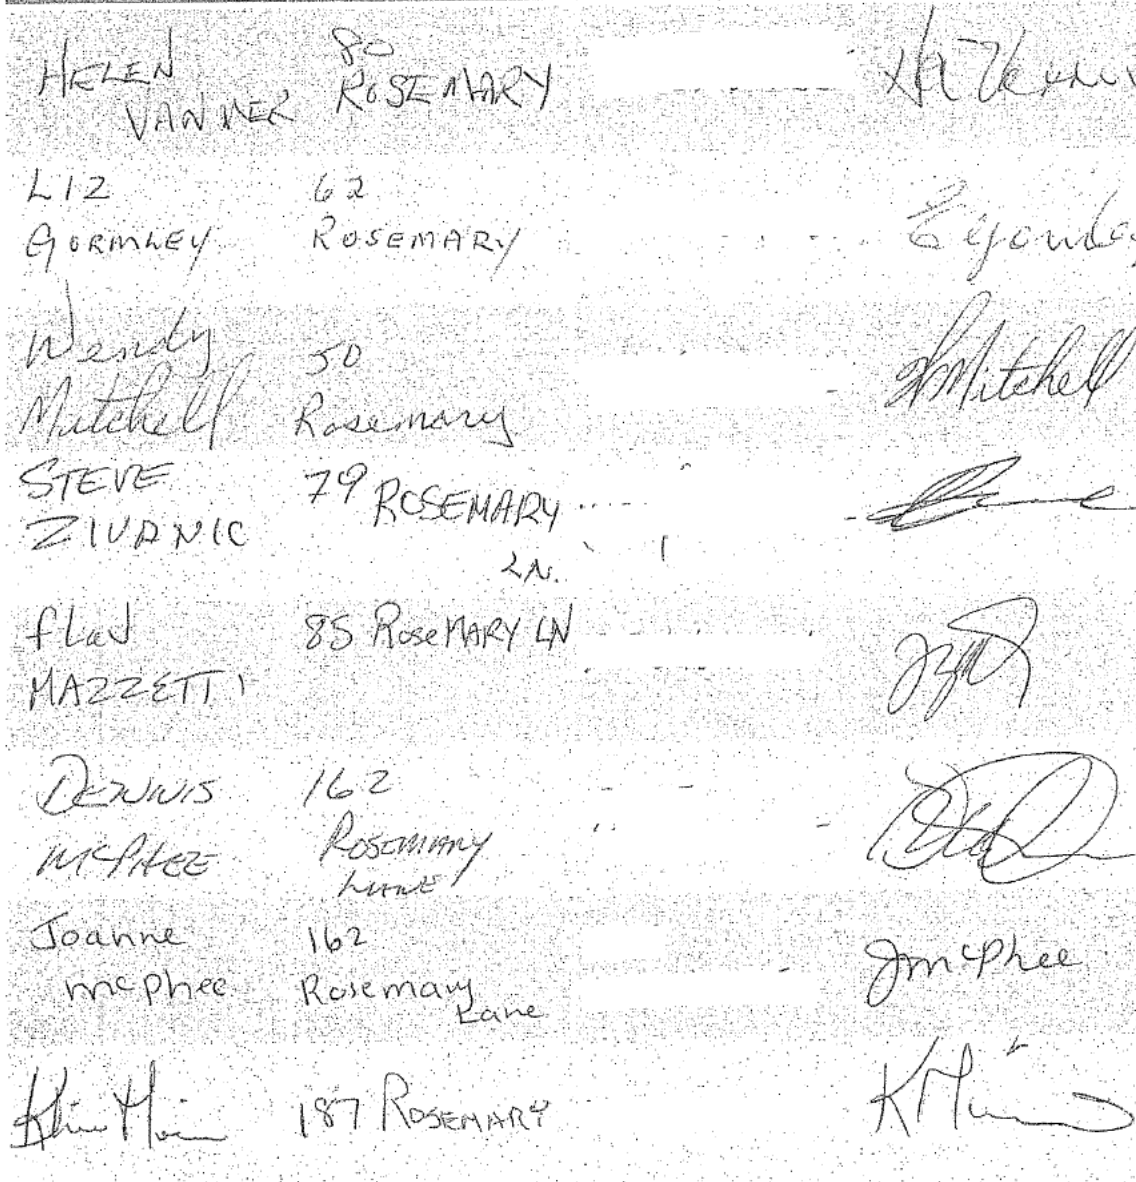 HELEN
VANNER
80
ROSEMARY
LIZ
GORMLEY
62
ROSEMARY
Wendy
Mitchell
50
Rosemary
WMitchell
STEVE
ZIVANIC
79 ROSEMARY
LN.
MAZZETTI
85 RoseMARY LN
DENNIS
McPHEE
162
ROSEMARY
LANE
Joanne
mcphee
162
Rosemary
Lane
JmcPhee
187 ROSEMARY